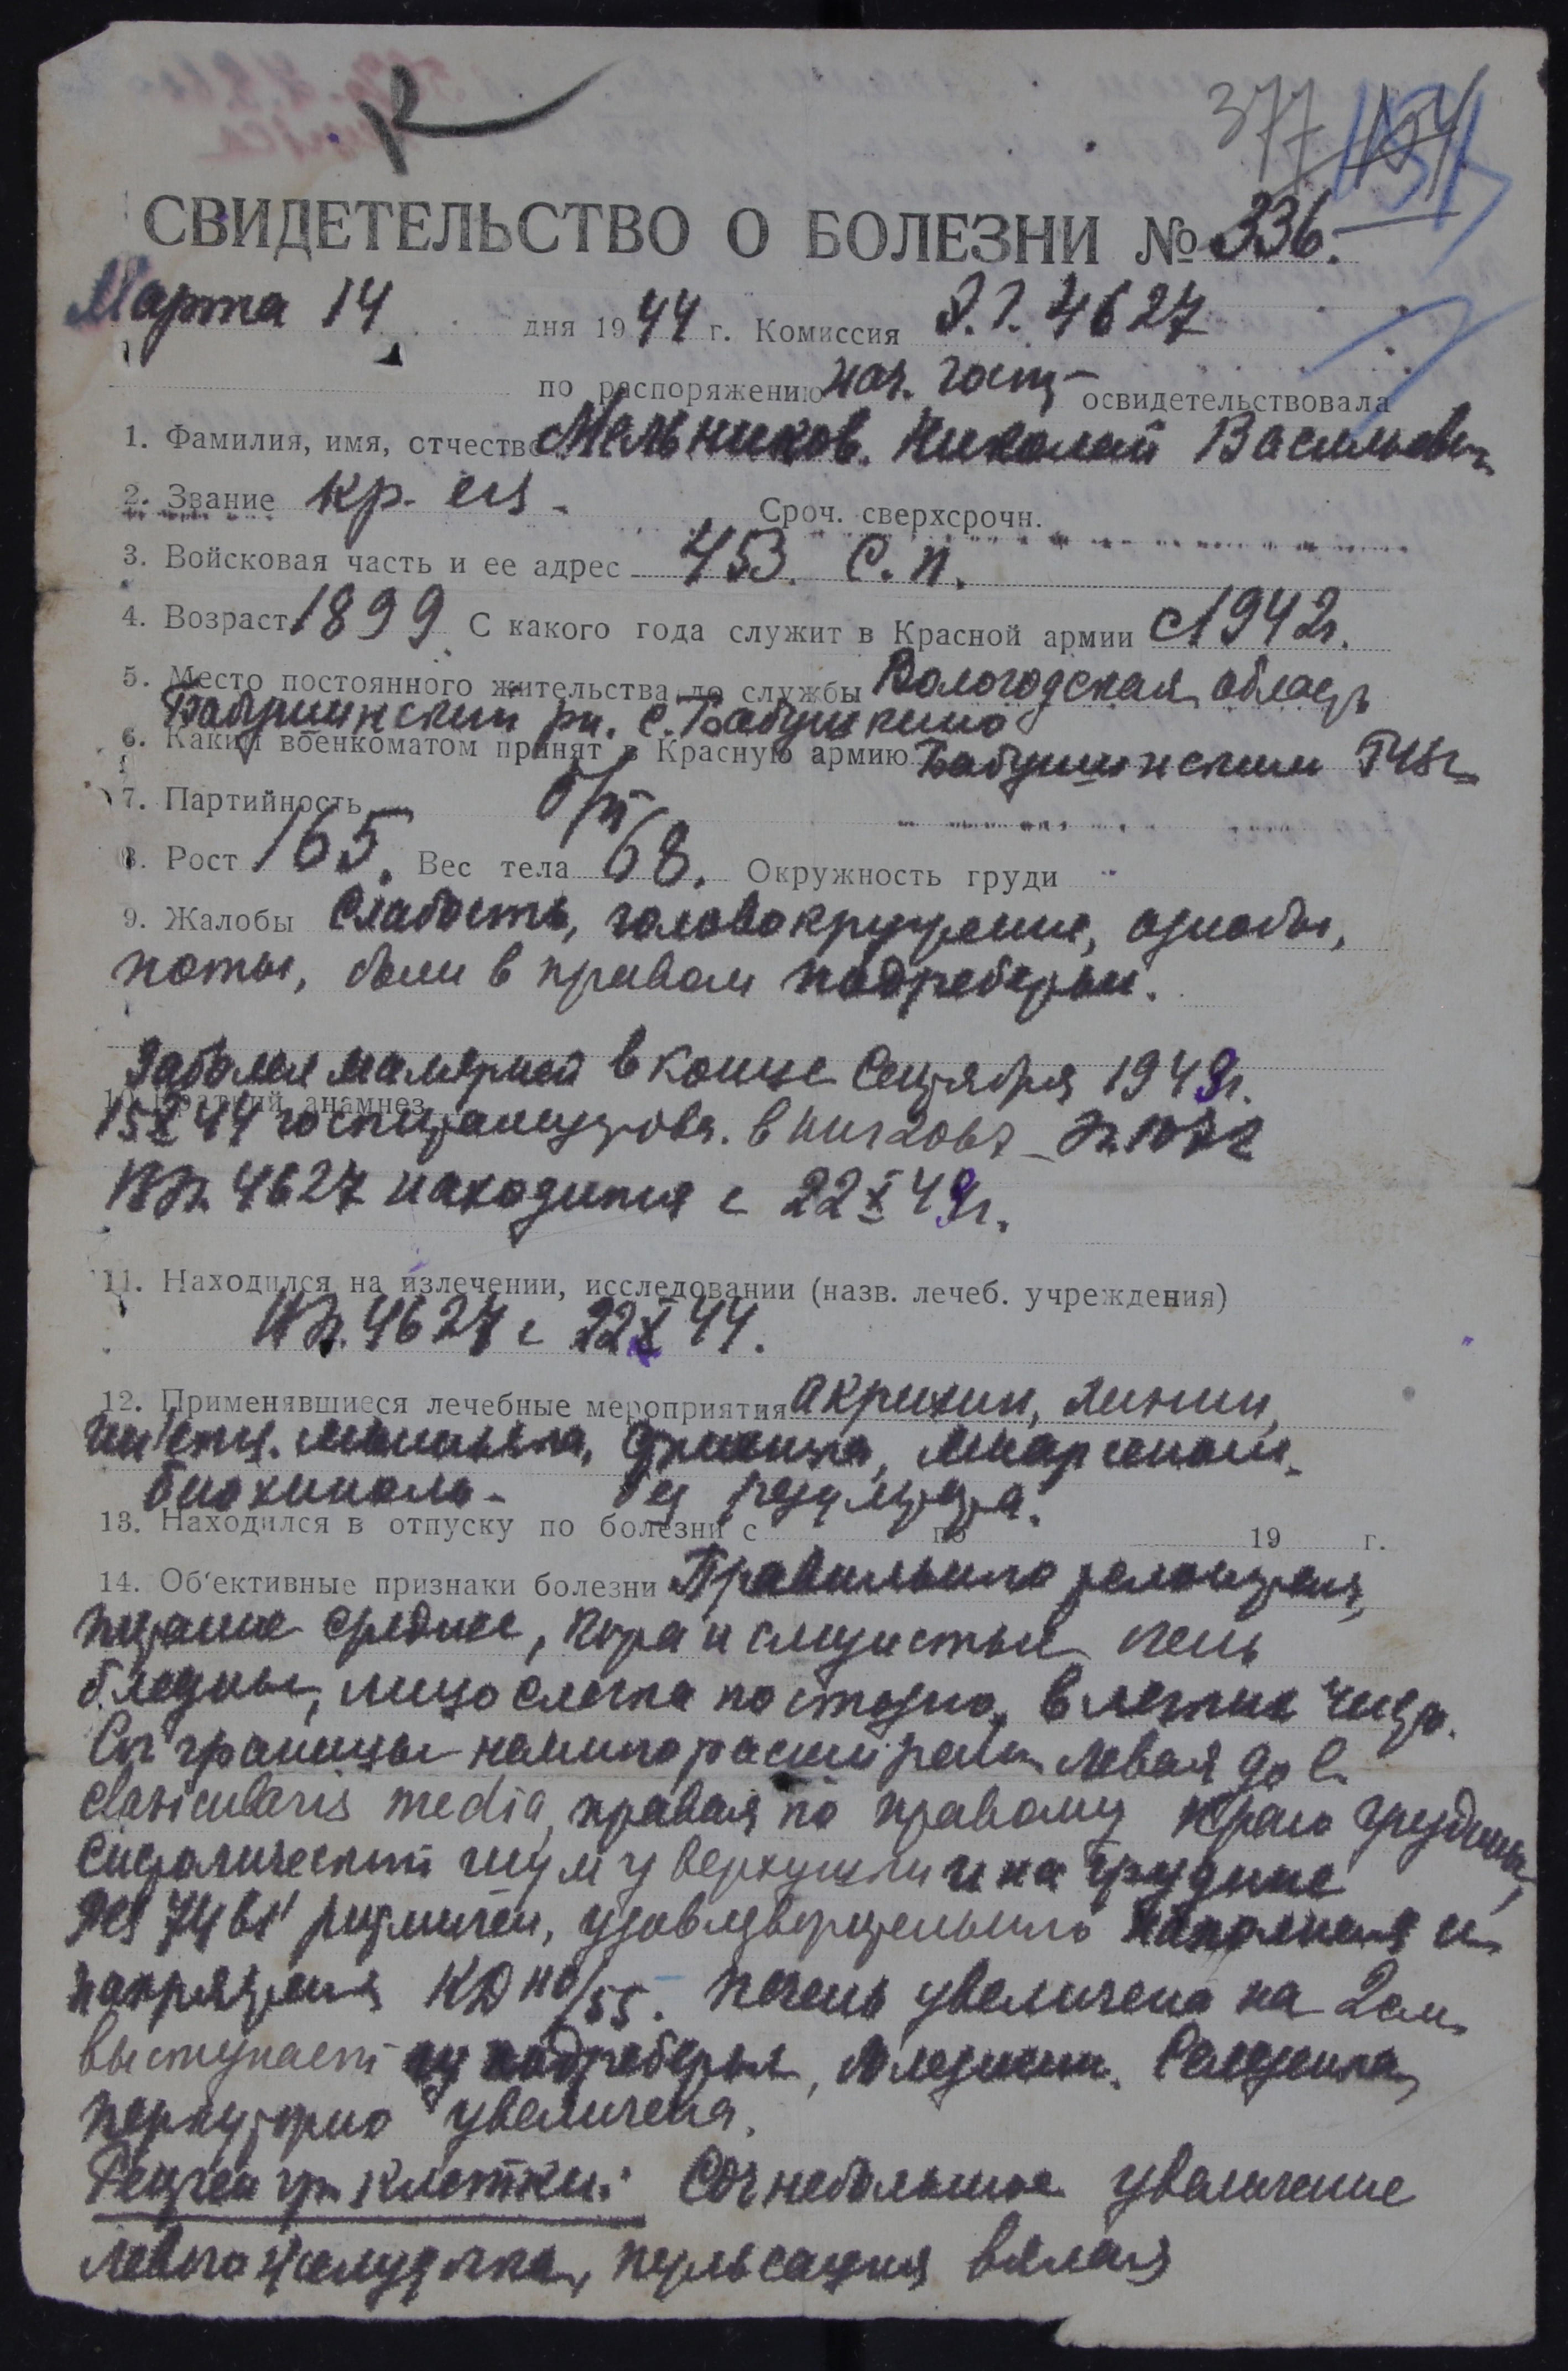 377
СВИДЕТЕЛЬСТВО О БОЛЕЗНИ № 336.
Марта 14 дня 1944 г. Комиссия Э.Г. 4627
по распоряжению нач. госп- освидетельствовала
1. Фамилия, имя, отчество Мельников. Николай Васильевич
2. Звание кр-ец - Сроч. сверхсрочн.
3. Войсковая часть и ее адрес 453. С.п.
4. Возраст 1899 С какого года служит в Красной армии с 1942г.
5. Место постоянного жительства до службы Вологодская область
Бабушкинский рн. с. Бабушкино
6. Каким военкоматом принят в Красную армию Бабушкинским РВК
7. Партийность б/п
8. Рост 165. Вес тела 68. Окружность груди
9. Жалобы Слабость, головокружение, ознобы,
поты, боли в правом подреберьи.
Заболел малярией в конце Сентября 1943г.
10. Краткий анамнез
15 X 44 госпитализиров. в
4627 находится с 22 X 43г.
11. Находился на излечении, исследовании (назв. лечеб. учреждения)
4627 с 22 X 44.
12. Применявшиеся лечебные мероприятия акрихин, хинин,
миарсенол,
биохиноль- без результата.
13. Находился в отпуску по болезни с по 19 г.
14. Об'ективные признаки болезни Правильного телосложения,
питание среднее, кожа и слизистые очень
бледны, лицо слегка пастозно, в легких чисто.
Cor границы немного расширены левая до l.
clavicularis media, правая по правому краю грудины,
систолический шум у верхушки и на грудине
Ps 74 в 1' ритмичен, удовлетворительного наполнения и
напряжения КД 110/55. печень увеличена на 2 см.
выступает из подреберья, болезнен. Селезенка
перкуторно увеличена.
Рентген гр. клетки: Cor небольшое увеличение
левого желудочка, пульсация вялая